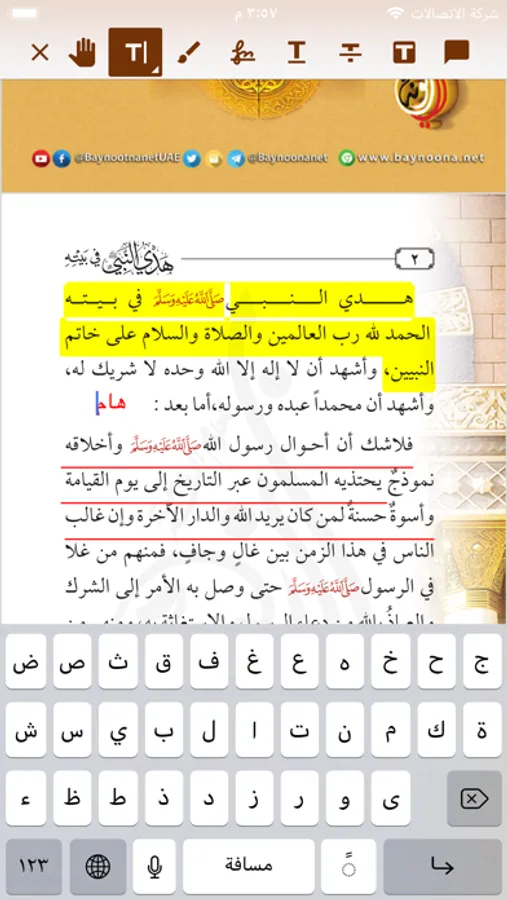 شركة الاتصالات ٣:٥٧ م
T T T T
@BaynootnanetUAE @Baynoonanet www.baynoona.net
هَدْيُ النَّبِيِّ ﷺ فِي بَيْتِهِ ٢
هــدي النــبــي ﷺ في بيـتـه
الحمد لله رب العالمين والصلاة والسلام على خاتم
النبيين، وأشهد أن لا إله إلا الله وحده لا شريك له،
وأشهد أن محمداً عبده ورسوله،أما بعد : هام
فلاشك أن أحوال رسول الله ﷺ وأخلاقه
نموذجٌ يحتذيه المسلمون عبر التاريخ إلى يوم القيامة
وأسوةٌ حسنةٌ لمن كان يريد الله والدار الآخرة وإن غالب
الناس في هذا الزمن بين غالٍ وجافٍ، فمنهم من غلا
في الرسول ﷺ حتى وصل به الأمر إلى الشرك
ج ح خ ه ع غ ف ق ث ص ض
ة ك م ن ت ا ل ب ي س ش
ى و ر ز د ذ ط ظ ء
مسافة ١٢٣